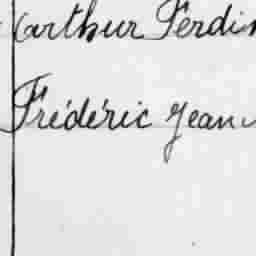 Arthur Ferdin
Frédéric Jean